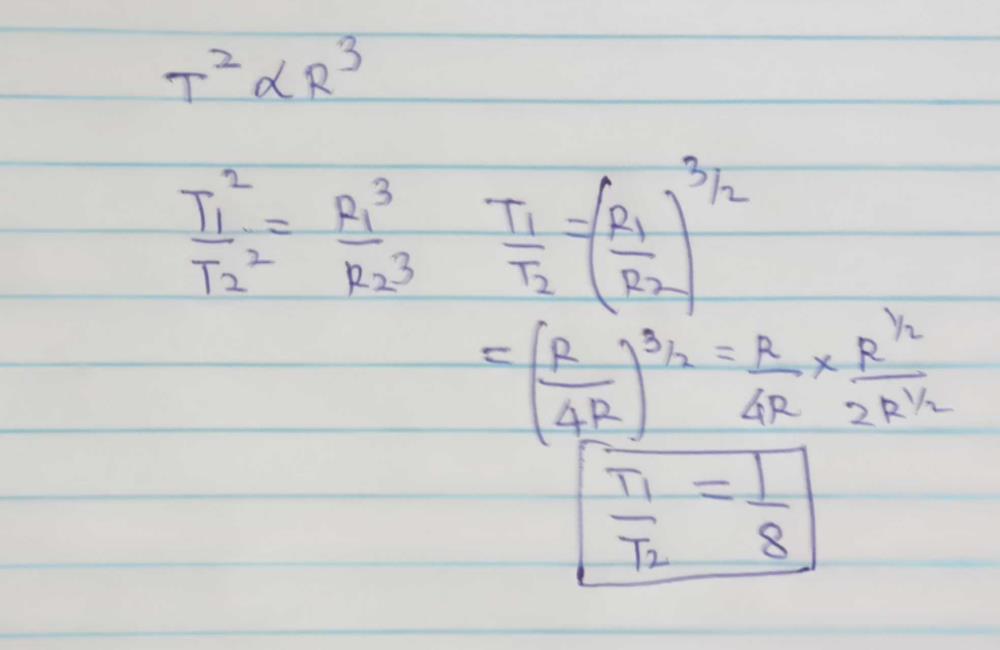 T² ∝ R³
T₁²/T₂² = R₁³/R₂³ T₁/T₂ = (R₁/R₂)^3/2
= (R/4R)^3/2 = R/4R × R^1/2/2R^1/2
T₁/T₂ = 1/8